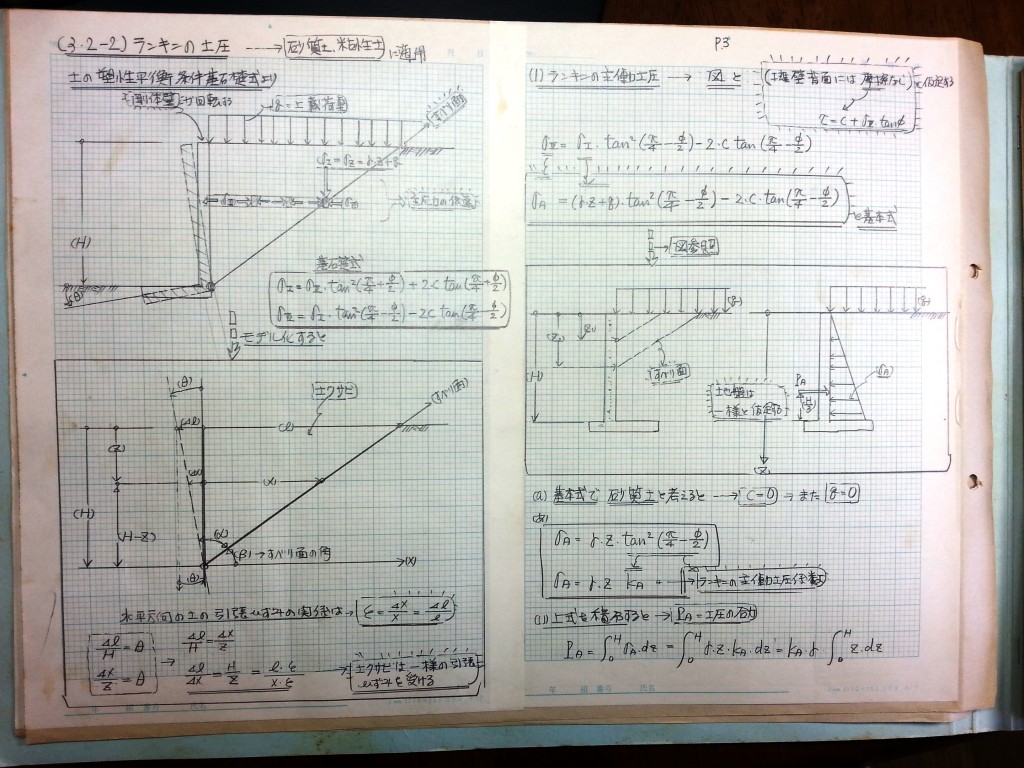 (3・2-2) ランキンの土圧 → 砂質土、粘性土 に適用
土の塑性平衡条件基礎式より
剛体壁 だけ回転する
q=上載荷重
すべり面
σI = σz = γ・z+q
主応力の作用
(H)
(θ)
基礎式
σI = σII・tan²(π/4+φ/2)+2C tan(π/4+φ/2)
σII = σI・tan²(π/4-φ/2)-2C tan(π/4-φ/2)
モデル化すると
(θ)
土クサビ
(すべり面)
(Δl)
(l)
(Z)
(Δx)
(x)
(H)
(H-Z)
(α)
(β)→すべり面の角
(X)
(θ)
水平方向の土の引張りひずみの関係は→ ε = Δx/x = Δl/l
Δl/H = θ
Δx/Z = θ
→ Δl/H = Δx/Z
Δl/Δx = H/Z = l・ε/x・ε
→ 土クサビは一様の引張りひずみを受ける
年 組 番号 氏名
P3
(1) ランキンの主働土圧 → 図と (擁壁背面には摩擦なし)と仮定する
τ = C + σ・tanφ
σII = σI・tan²(π/4-φ/2)-2・C tan(π/4-φ/2)
σA = (γ・z+q)・tan²(π/4-φ/2)-2・C・tan(π/4-φ/2)
と基本式
→図参照
(q)
(q)
(Z1)
(Z2)
(H)
すべり面
土地盤は
一様と仮定する
PA
(H/3)
(σA)
(Z)
(a) 基本式で 砂質土と考えると → C=0 → また q=0
σA = γ・z・tan²(π/4-φ/2)
σA = γ・z・kA → ランキンの主働土圧係数
(b) 上式を積分すると → PA=土圧の合力
PA = ∫₀ᴴ σA・dz = ∫₀ᴴ γ・z・kA・dz = kA・γ ∫₀ᴴ z・dz
年 組 番号 氏名